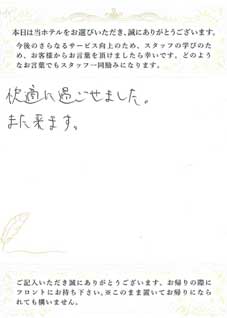 本日は当ホテルをお選びいただき、誠にありがとうございます。
今後のさらなるサービス向上のため、スタッフの学びのた
め、お客様からお言葉を頂けましたら幸いです。どのよう
なお言葉でもスタッフ一同励みになります。
快適に過ごせました。
また来ます。
ご記入いただき誠にありがとうございます。お帰りの際に
フロントにお持ち下さい。※このまま置いてお帰りになら
れても構いません。